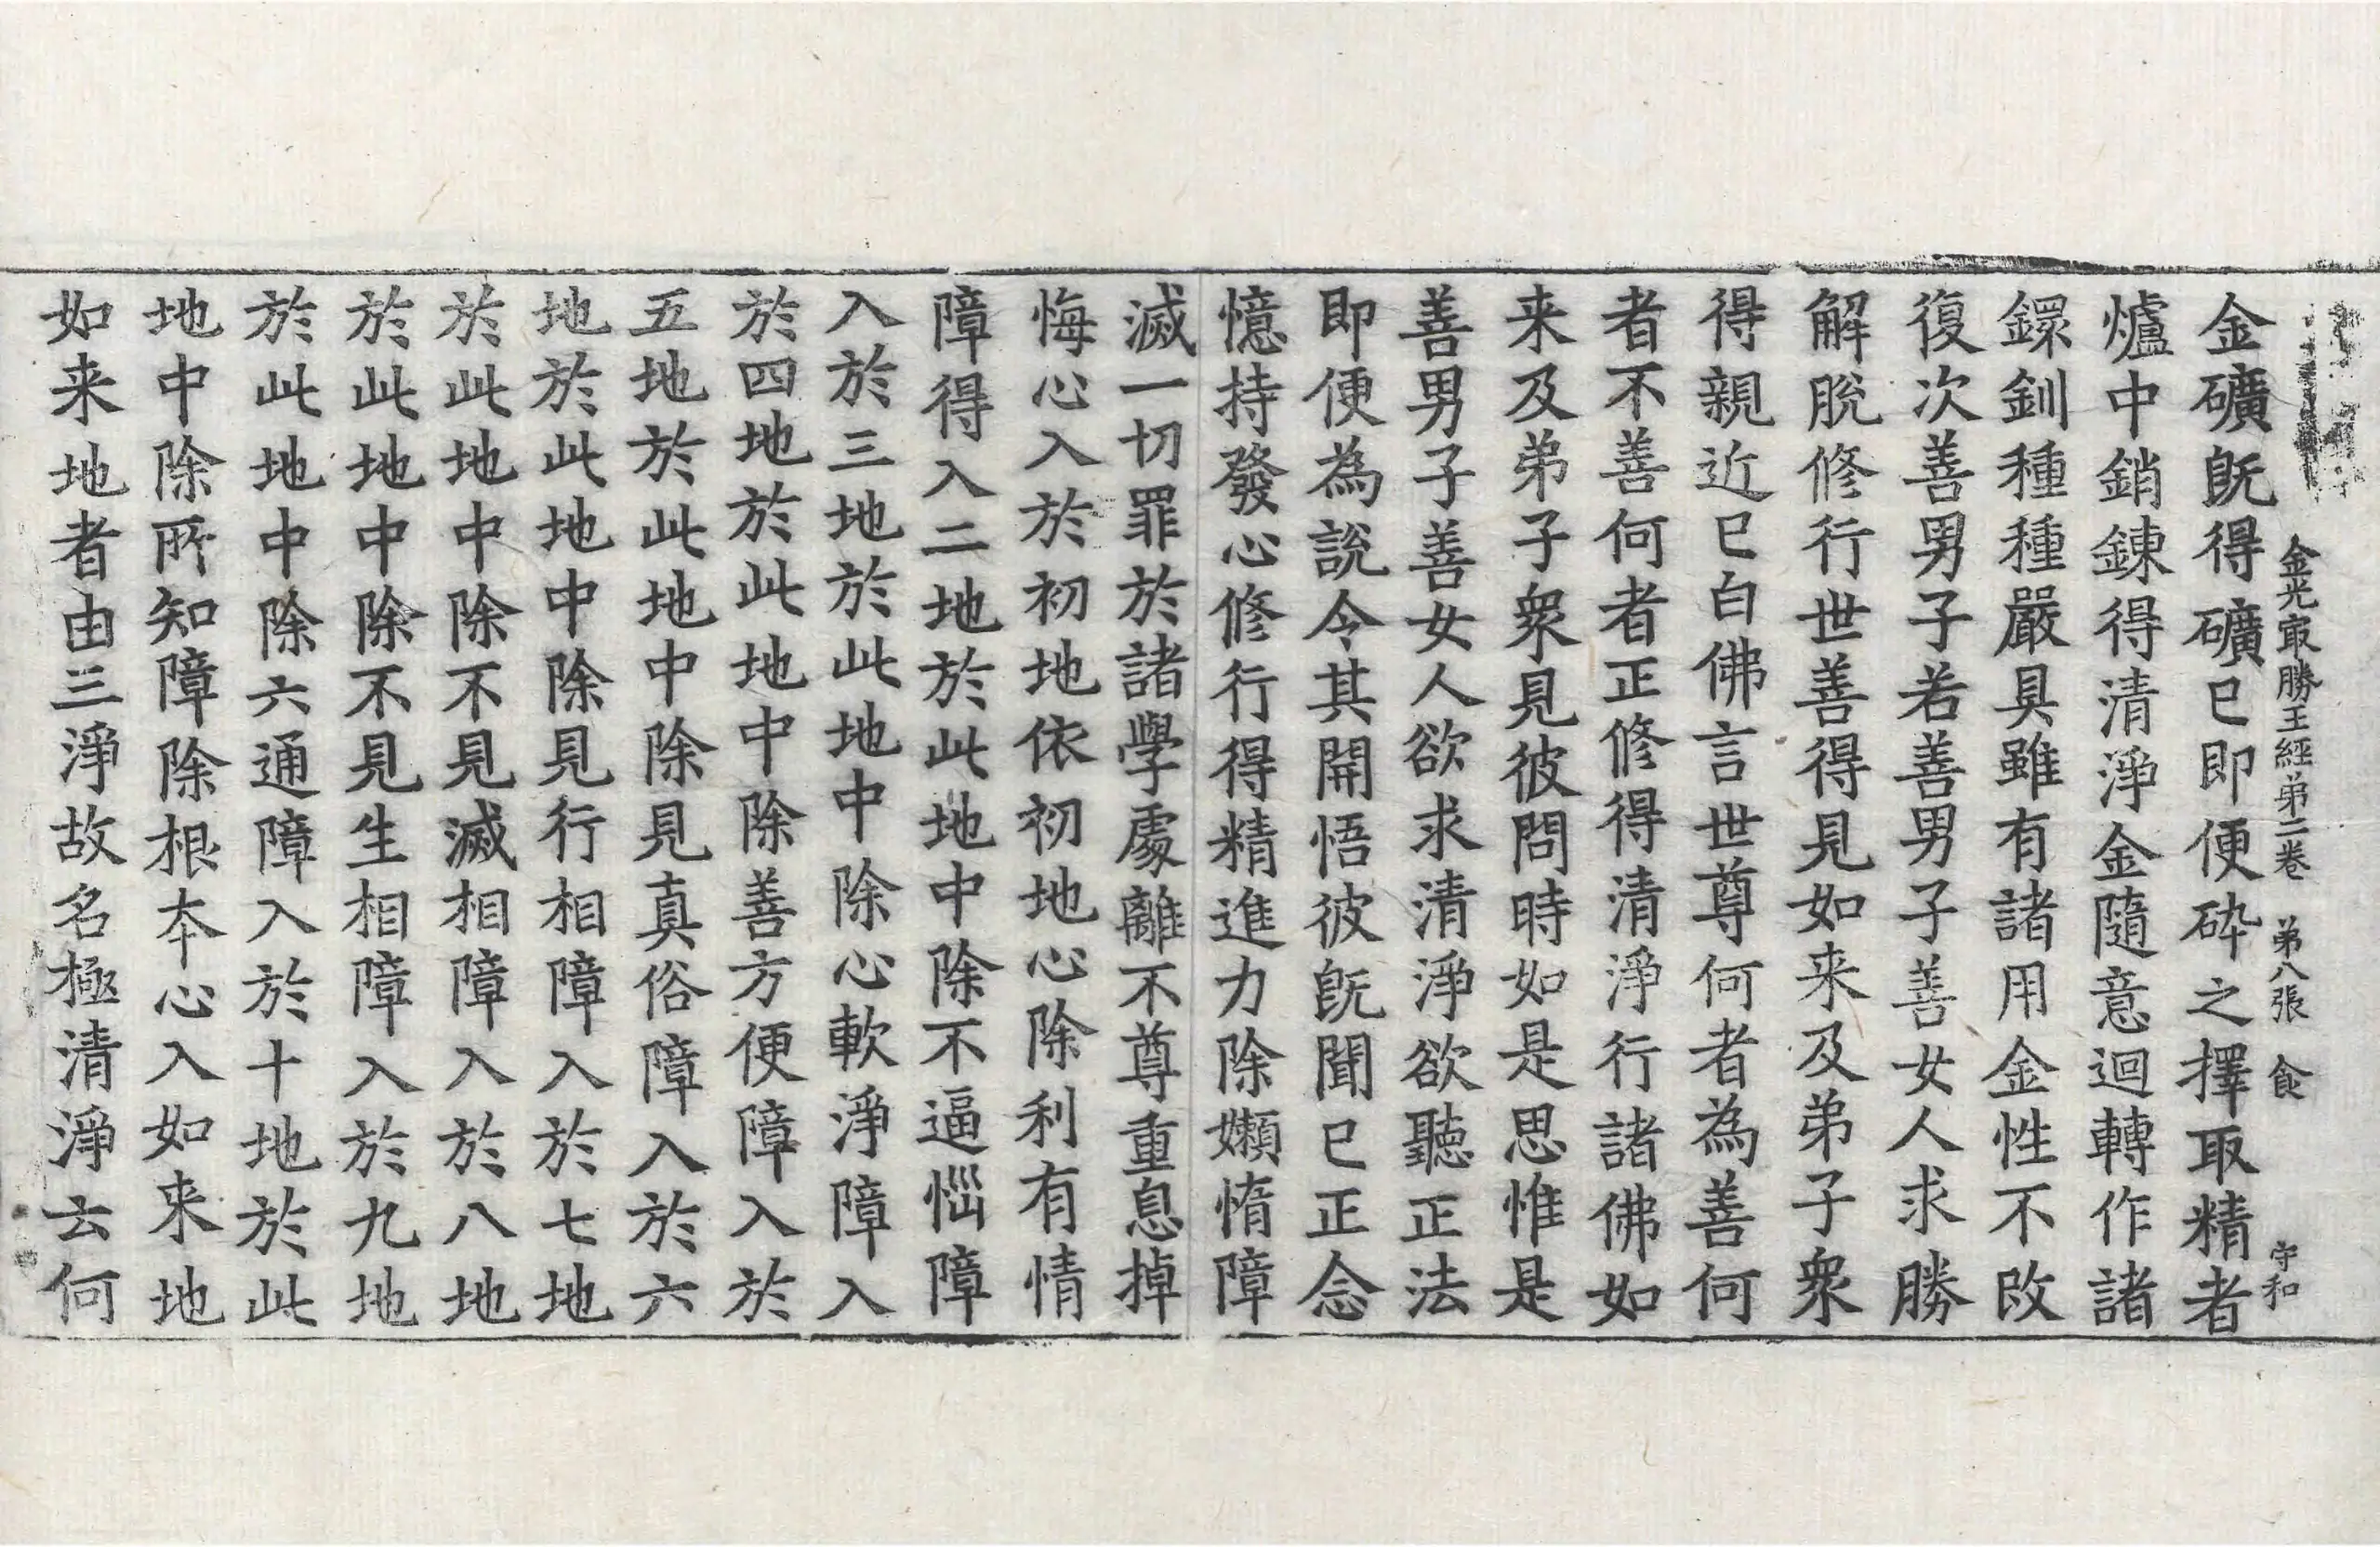 金光㝡勝王經弟二卷　弟八張　食　守和
金礦既得礦已即便碎之擇取精者
爐中銷鍊得清淨金隨意迴轉作諸
鐶釧種種嚴具雖有諸用金性不改
復次善男子若善男子善女人求勝
解脫修行世善得見如来及弟子衆
得親近已白佛言世尊何者為善何
者不善何者正修得清淨行諸佛如
来及弟子衆見彼問時如是思惟是
善男子善女人欲求清淨欲聽正法
即便為說令其開悟彼既聞已正念
憶持發心修行得精進力除嬾惰障
滅一切罪於諸學處離不尊重息掉
悔心入於初地依初地心除利有情
障得入二地於此地中除不逼惱障
入於三地於此地中除心軟淨障入
於四地於此地中除善方便障入於
五地於此地中除見真俗障入於六
地於此地中除見行相障入於七地
於此地中除不見滅相障入於八地
於此地中除不見生相障入於九地
於此地中除六通障入於十地於此
地中除所知障除根本心入如来地
如来地者由三淨故名極清淨云何